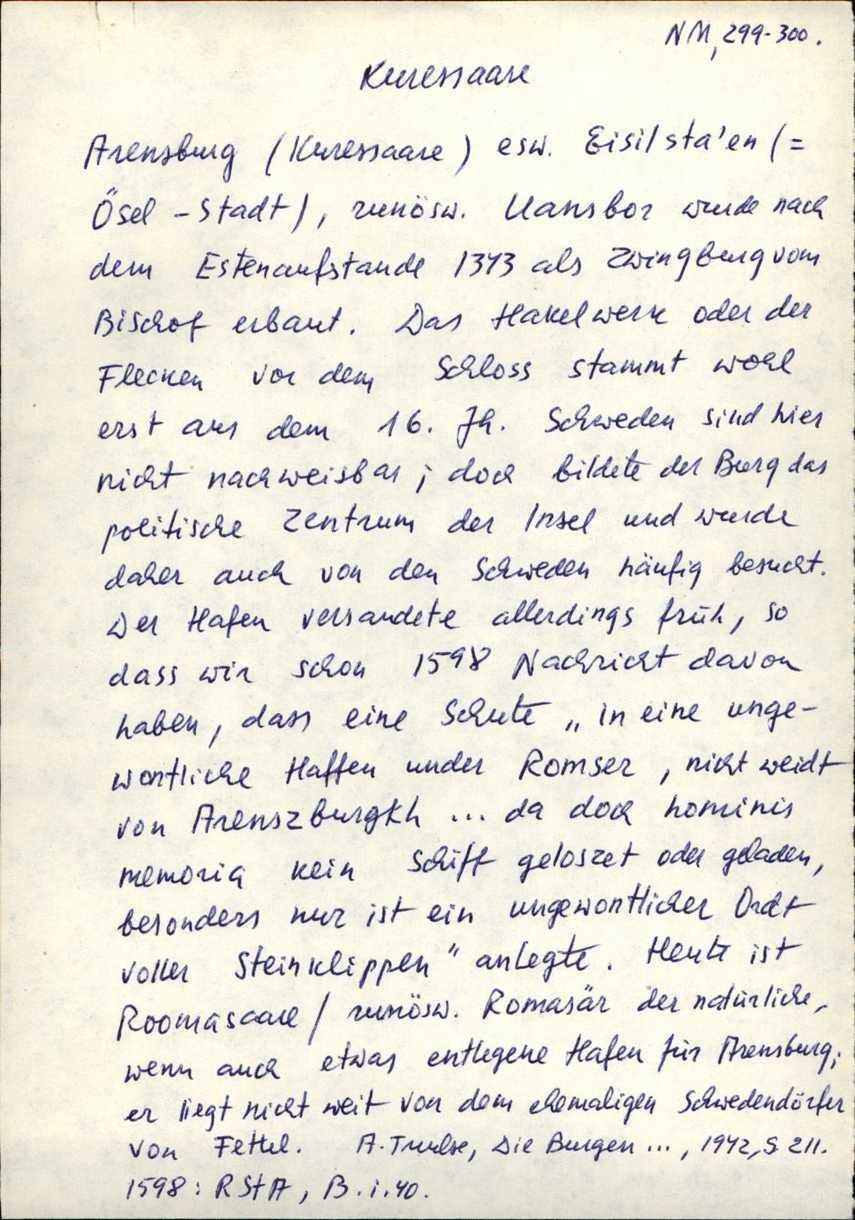 NM, 299-300.
Kuressaare
Arensburg (Kuressaare) esw. Eisilsta'en (=
Ösel-Stadt), runösw. Uansbor wurde nach
dem Estenaufstande 1343 als Zwingburg vom
Bischof erbaut. Das Hakelwerk oder der
Flecken vor dem Schloss stammt wohl
erst aus dem 16. Jh. Schweden sind hier
nicht nachweisbar; doch bildete der Burg das
politische Zentrum der Insel und wurde
daher auch von den Schweden häufig besucht.
Der Hafen versandete allerdings früh, so
dass wir schon 1598 Nachricht davon
haben, dass eine Schute „in eine unge-
wontliche Haffen under Romser, nicht weidt
von Arenszburgkh ... da doch hominis
memoria kein Schiff geloszet oder geladen,
besonders nur ist ein ungewontlicher Ordt
voller Steinklippen" anlegte. Heute ist
Roomasaare / runösw. Romasär der natürliche,
wenn auch etwas entlegene Hafen für Arensburg;
er liegt nicht weit von dem ehemaligen Schwedendörfer
von Fettel. A. Tuulse, Die Burgen ..., 1942, S. 211.
1598: RStA, B.i.40.